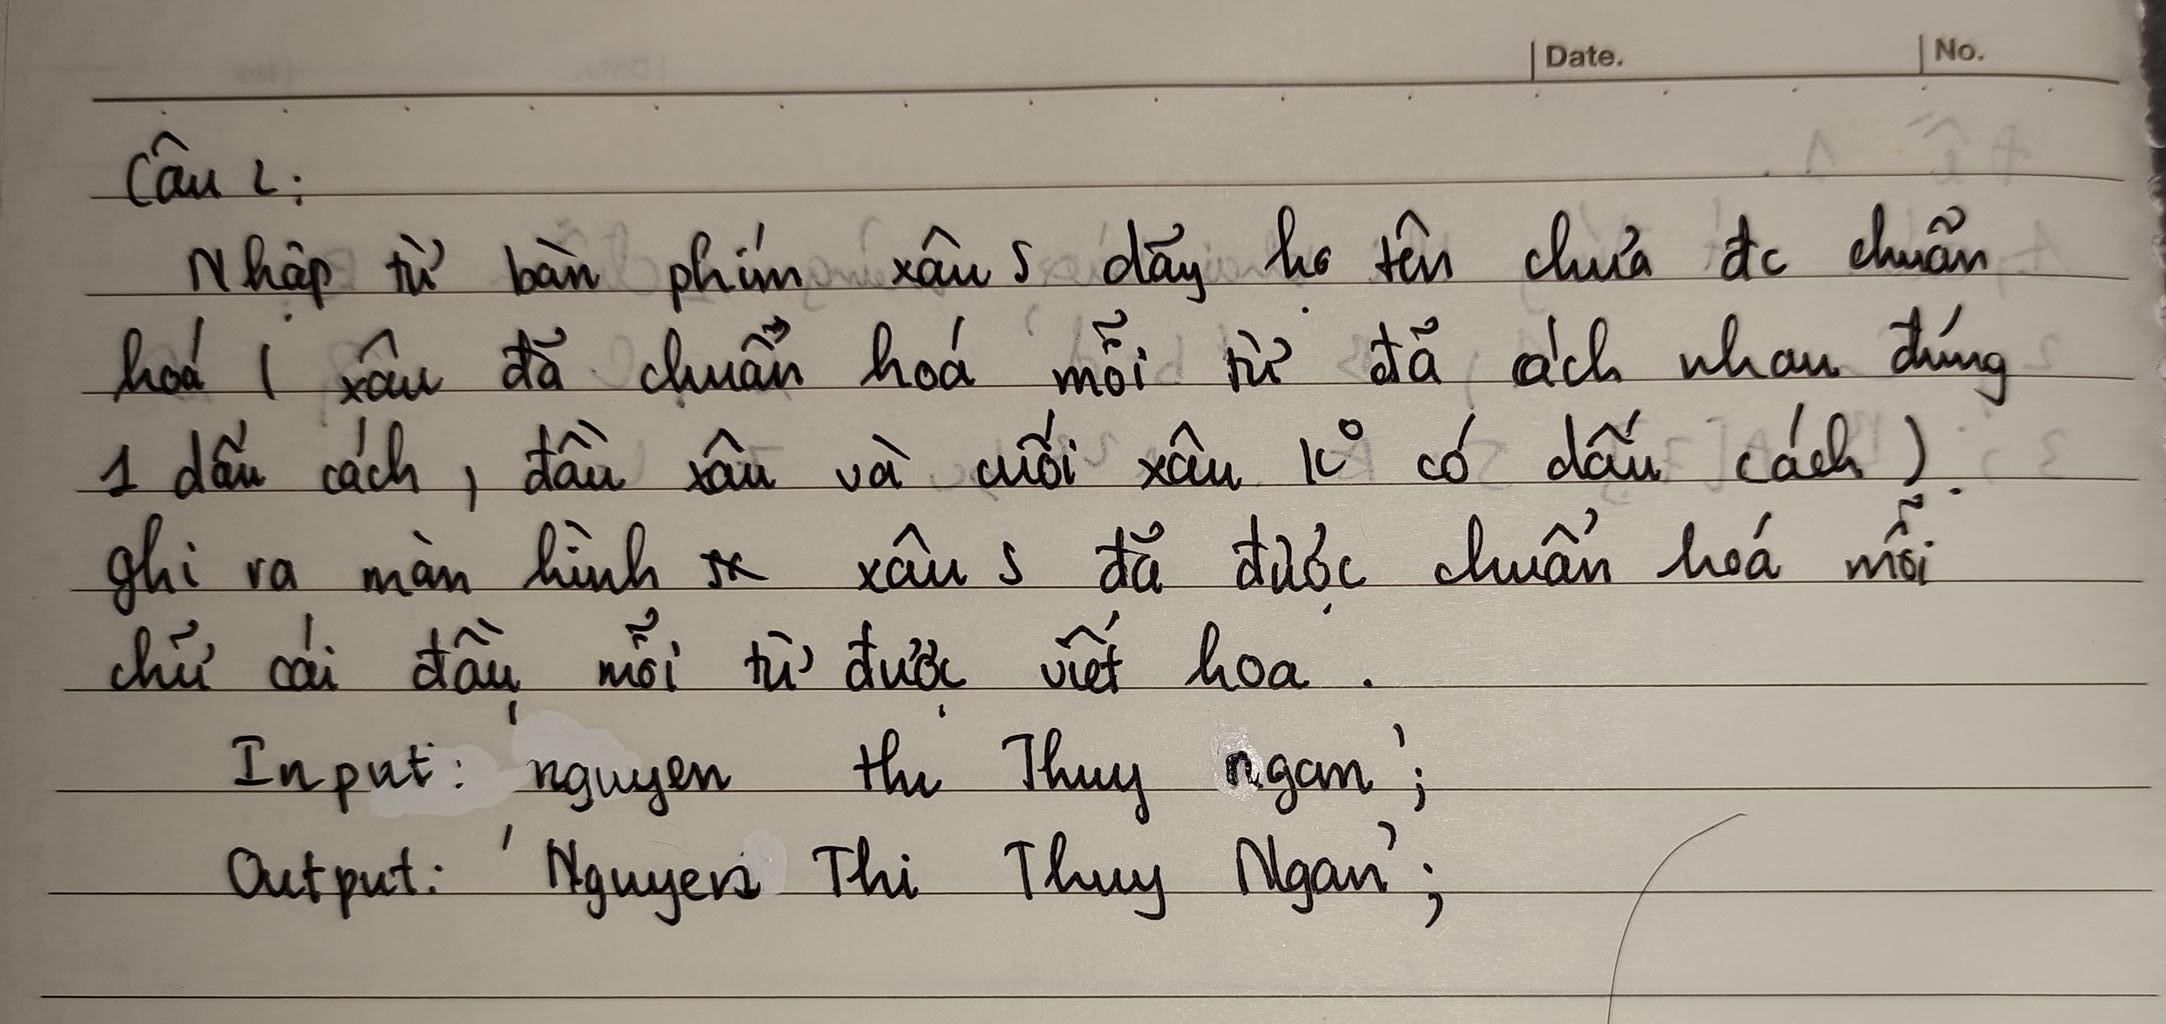 Date. No.
Câu 2:
Nhập từ bàn phím xâu s dãy họ tên chưa đc chuẩn
hoá ( xâu đã chuẩn hoá mỗi từ đã cách nhau đúng
1 dấu cách, đầu xâu và cuối xâu k° có dấu cách).
ghi ra màn hình xâu s đã được chuẩn hoá mỗi
chữ cái đầu mỗi từ được viết hoa.
Input: 'nguyen thi Thuy ngan';
Output: 'Nguyen Thi Thuy Ngan';